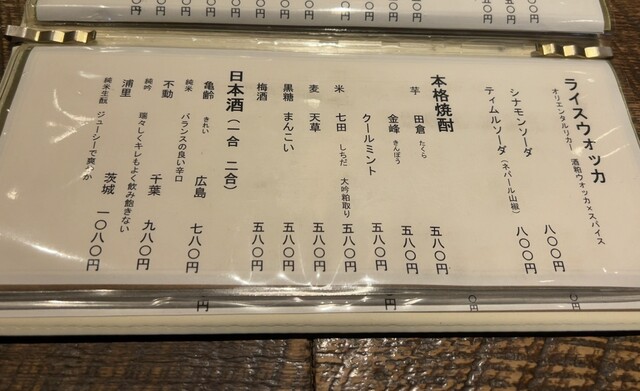 ライスウォッカ
オリエンタルリカー 酒粕ウォッカ×スパイス
シナモンソーダ 八〇〇円
ティムルソーダ(ネパール山椒) 八〇〇円
本格焼酎
芋 田倉 たくら 五八〇円
金峰 きんぽう 五八〇円
クールミント 五八〇円
米 七田 しちだ 大吟粕取り 五八〇円
麦 天草 五八〇円
黒糖 まんこい 五八〇円
梅酒 五八〇円
日本酒(一合 二合)
亀齢 きれい 広島 七八〇円
純米 バランスの良い辛口
不動 千葉 九八〇円
純吟 瑞々しくキレもよく飲み飽きない
浦里 茨城 一〇八〇円
純米生酛 ジューシーで爽やか